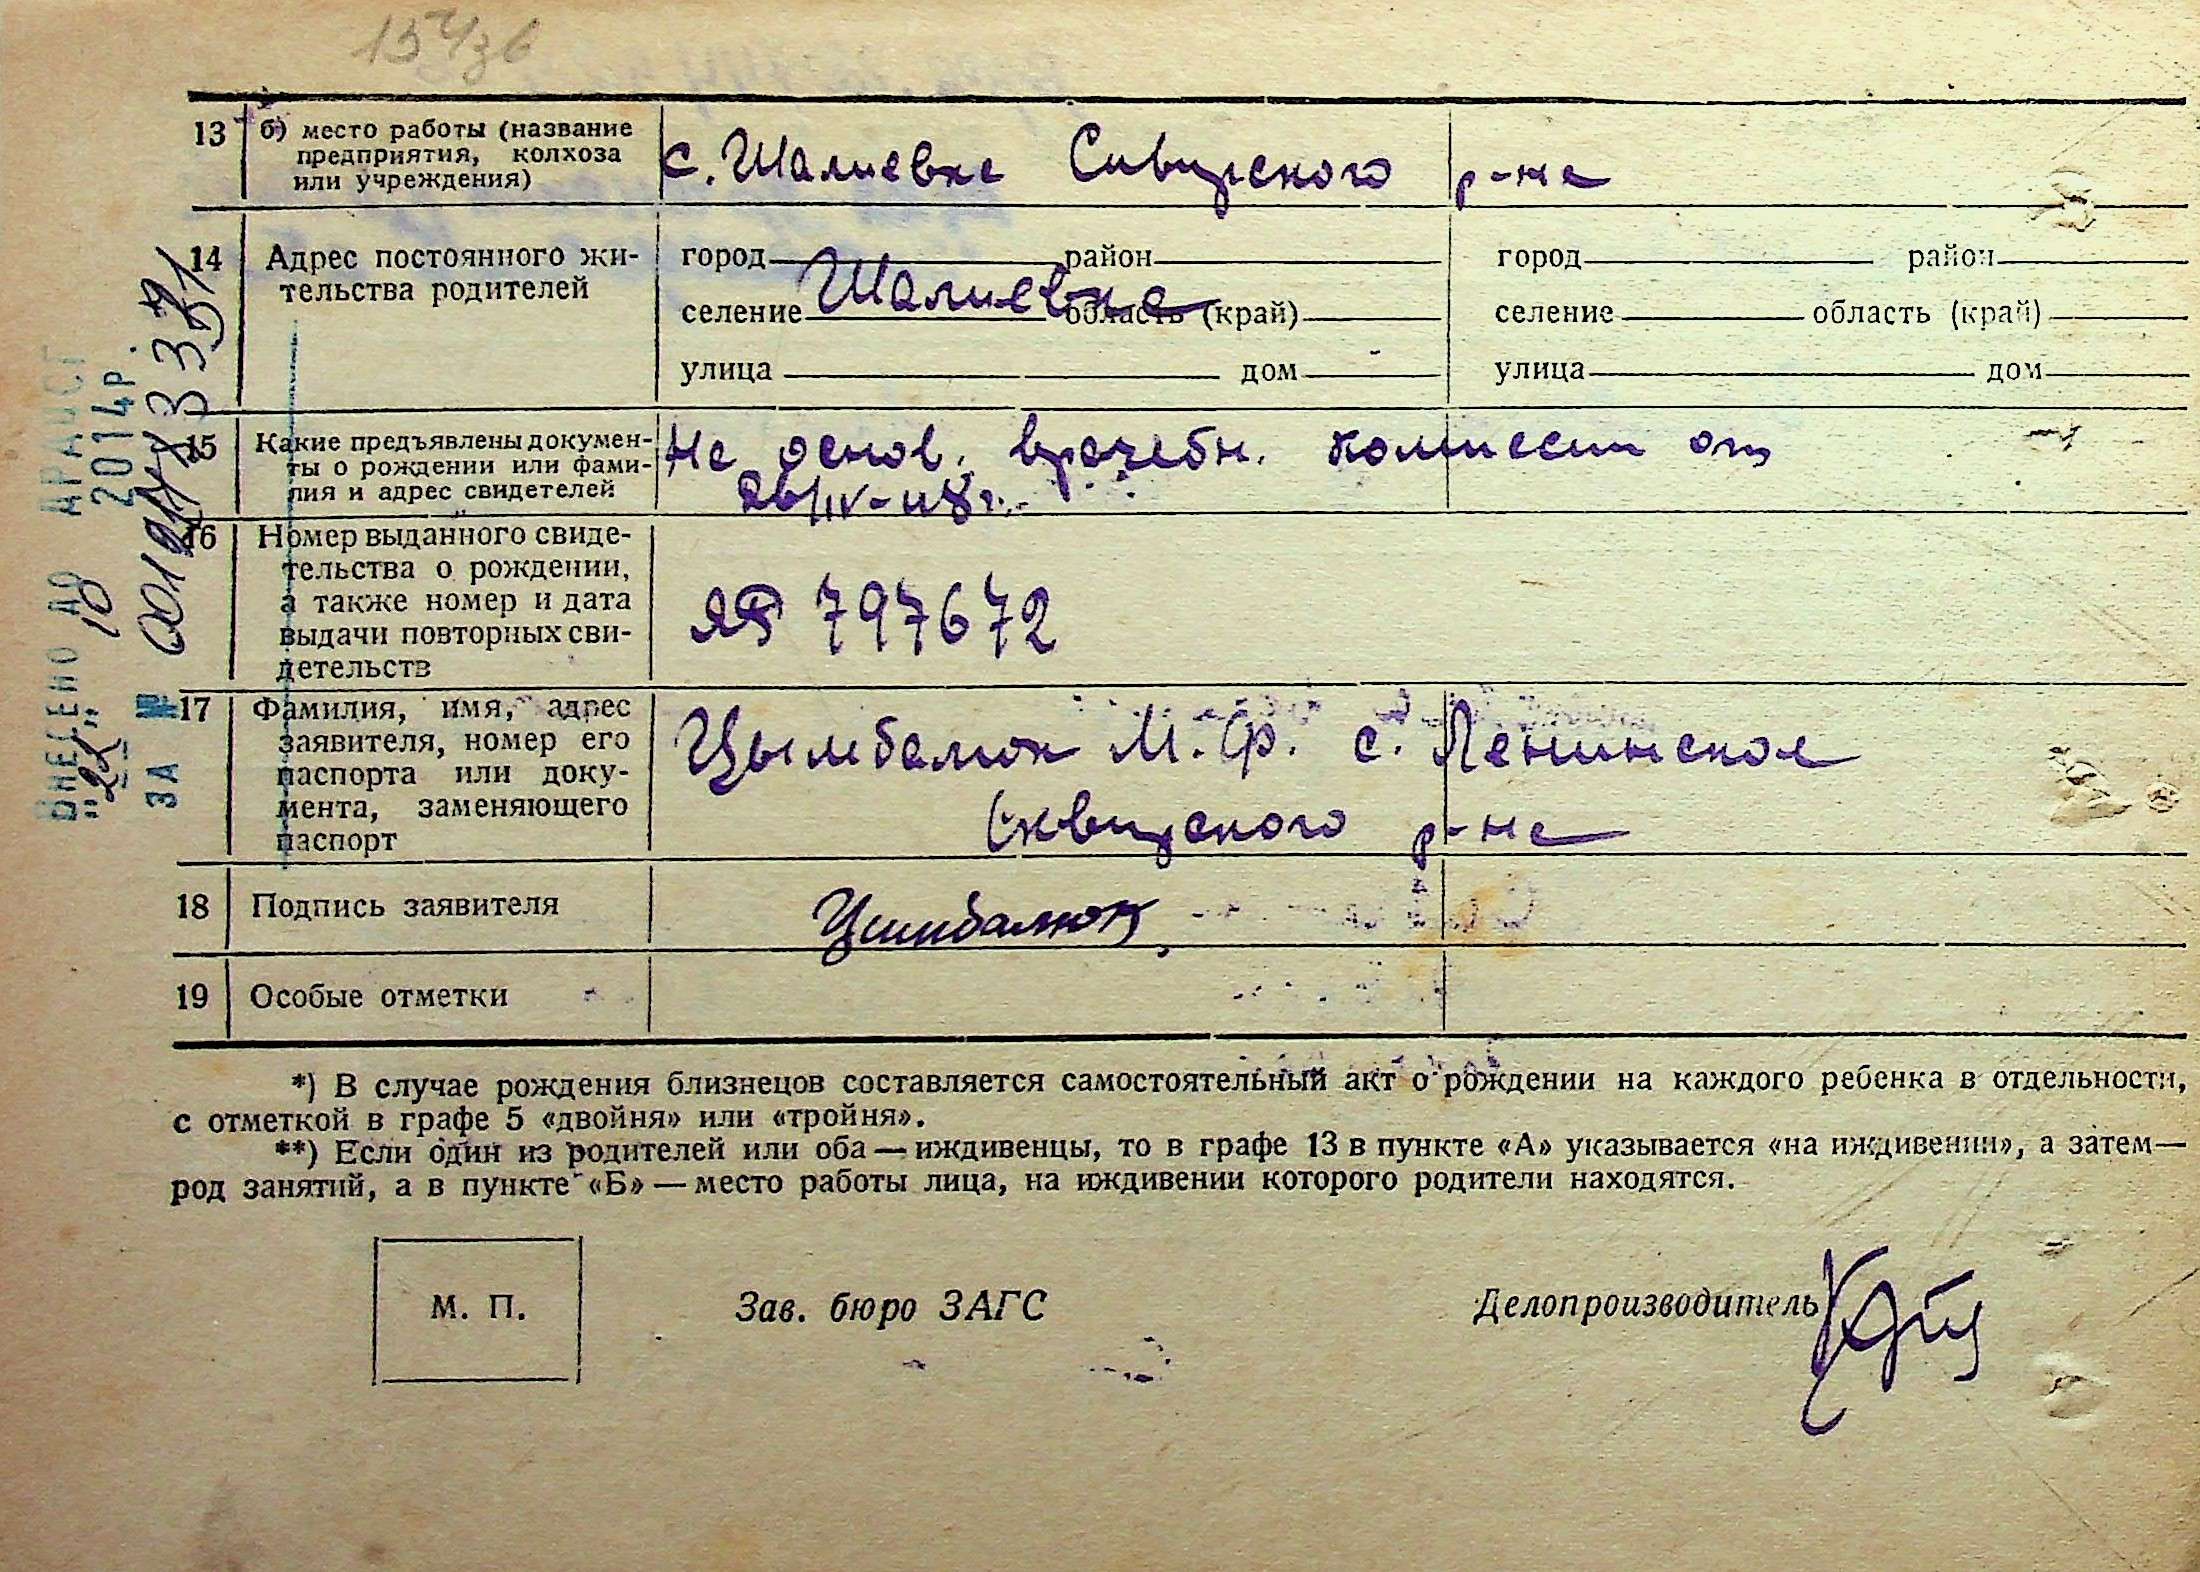 13 б) место работы (название
предприятия, колхоза
или учреждения)
с. Шалиевка Сквирского р-на
14 Адрес постоянного жи-
тельства родителей
город район
селение Шалиевка область (край)
улица дом
город район
селение область (край)
улица дом
15 Какие предъявлены докумен-
ты о рождении или фами-
лия и адрес свидетелей
На основ. врачебн. комиссии от
26/IV-48 г.
16 Номер выданного свиде-
тельства о рождении,
а также номер и дата
выдачи повторных сви-
детельств
797672
17 Фамилия, имя, адрес
заявителя, номер его
паспорта или доку-
мента, заменяющего
паспорт
Цымбалюк М. Ф. с. Ленинское
Сквирского р-на
18 Подпись заявителя
Цимбалюк
19 Особые отметки
*) В случае рождения близнецов составляется самостоятельный акт о рождении на каждого ребенка в отдельности,
с отметкой в графе 5 «двойня» или «тройня».
**) Если один из родителей или оба — иждивенцы, то в графе 13 в пункте «А» указывается «на иждивении», а затем —
род занятий, а в пункте «Б» — место работы лица, на иждивении которого родители находятся.
М. П.
Зав. бюро ЗАГС
Делопроизводитель
ВНЕСЕНО ДО ДРАЦСГ
"22" 10 2014р.
ЗА №